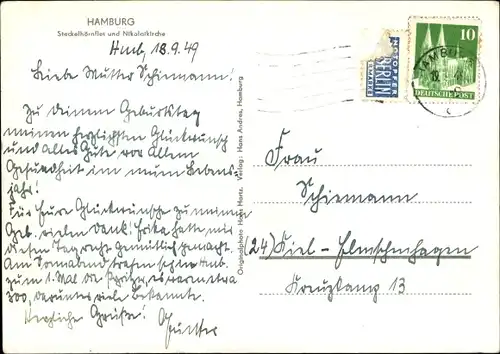 HAMBURG
Steckelhörnfleet und Nikolaikirche
Hmb, 18.9.49
Liebe Mutter Schiemann!
Zu Deinem Geburtstag
meinen herzlichsten Glückwunsch
und alles Gute vor allem
Gesundheit im neuen Lebens-
jahr!
Für Eure Glückwünsche zu meinem
Geb. vielen Dank! Erika hatte mir
diesen Tag recht gemütlich gemacht.
Am Sonnabend trafen sich in Hmb.
zum 1. Mal die es waren etwa
300, darunter viele Bekannte.
Herzliche Grüße!
Günther
Originalphoto Hans Hartz. Verlag: Hans Andres, Hamburg
NOTOPFER
2 BERLIN
STEUERMARKE
10
DEUTSCHE POST
HAMBURG
Frau
Schiemann
(24) Kiel-Elmschenhagen
Kreuzkamp 13